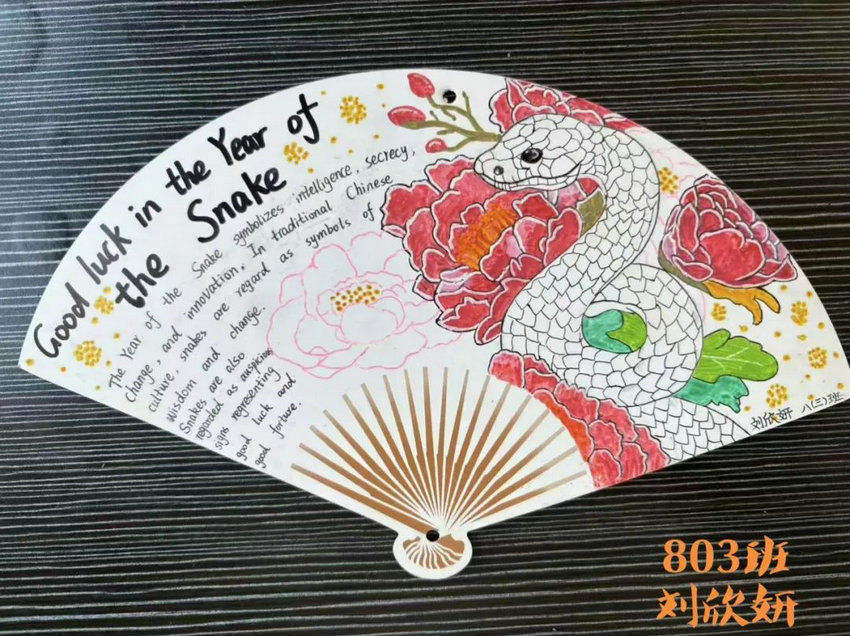 Good luck in the Year of
the Snake
The Year of the Snake symbolizes intelligence, secrecy,
change, and innovation. In traditional Chinese
culture, snakes are regard as symbols of
wisdom and change.
Snakes are also
regarded as auspicious
signs regresenting
good luck and
good forture.
刘欣妍 八(三)班
803班
刘欣妍